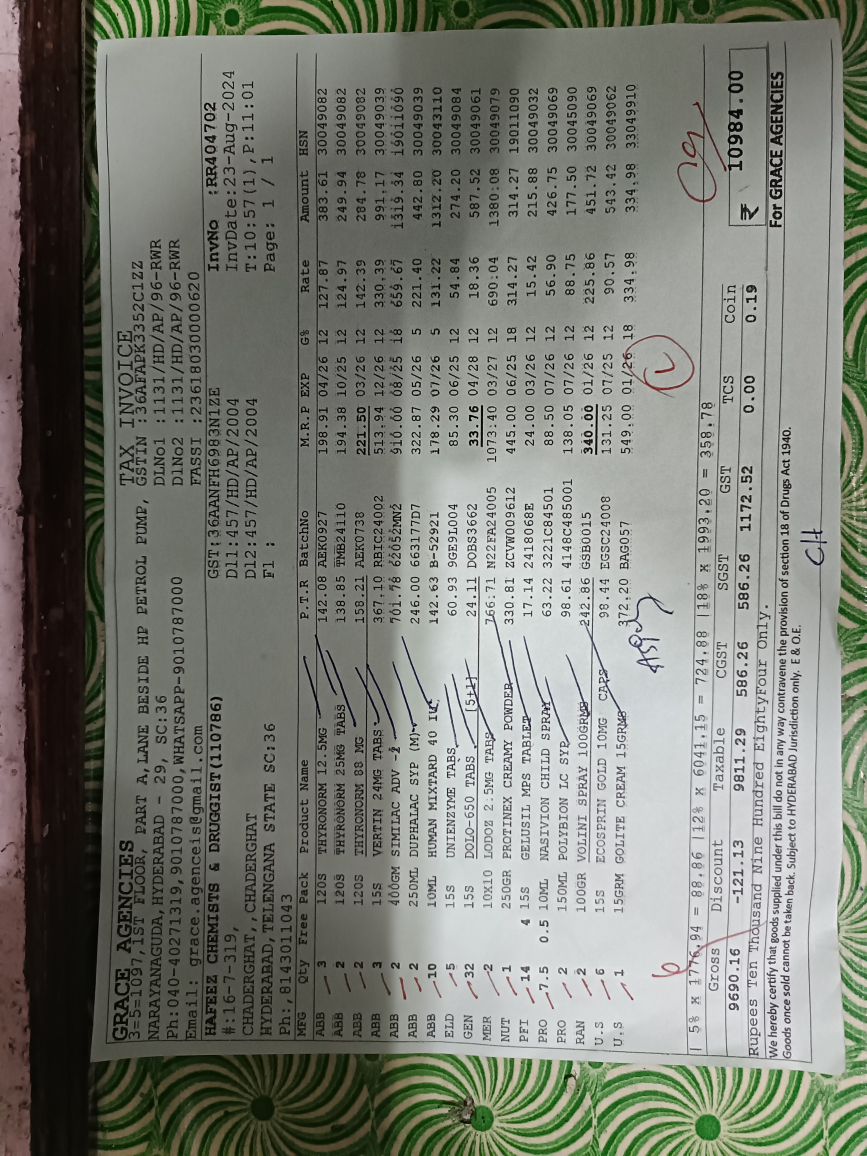 GRACE AGENCIES
TAX INVOICE
3=5=1097,1ST FLOOR, PART A,LANE BESIDE HP PETROL PUMP, GSTIN :36AFAPK3352C1ZZ
NARAYANAGUDA,HYDERABAD - 29, SC:36 DLNo1 :1131/HD/AP/96-RWR
Ph:040-40271319,9010787000,WHATSAPP-9010787000 DlNo2 :1131/HD/AP/96-RWR
Email: grace.agenceis@gmail.com FASSI :23618030000620
HAFEEZ CHEMISTS & DRUGGIST(110786) GST:36AANFH6983N1ZE InvNo :RR404702
#:16-7-319, D11:457/HD/AP/2004 InvDate:23-Aug-2024
CHADERGHAT,,CHADERGHAT D12:457/HD/AP/2004 T:10:57(1),P:11:01
HYDERABAD,TELENGANA STATE SC:36 F1 : Page: 1 / 1
Ph:,8143011043
MFG Qty Free Pack Product Name P.T.R BatchNo M.R.P EXP G% Rate Amount HSN
ABB 3 120S THYRONORM 12.5MG 142.08 AEK0927 198.91 04/26 12 127.87 383.61 30049082
ABB 2 120S THYRONORM 25MG TABS 138.85 TMB24110 194.38 10/25 12 124.97 249.94 30049082
ABB 2 120S THYRONORM 88 MG 158.21 AEK0738 221.50 03/26 12 142.39 284.78 30049082
ABB 3 15S VERTIN 24MG TABS 367.10 RBIC24002 513.94 12/26 12 330.39 991.17 30049039
ABB 2 400GM SIMILAC ADV -2 701.78 62052MN2 910.00 08/25 18 659.67 1319.34 19011090
ABB 2 250ML DUPHALAC SYP (M) 246.00 663177D7 322.87 05/26 5 221.40 442.80 30049039
ABB 10 10ML HUMAN MIXTARD 40 IU 142.63 B-52921 178.29 07/26 5 131.22 1312.20 30043110
ELD 5 15S UNIENZYME TABS 60.93 9GE9L004 85.30 06/25 12 54.84 274.20 30049084
GEN 32 15S DOLO-650 TABS (5+1) 24.11 DOBS3662 33.76 04/28 12 18.36 587.52 30049061
MER 2 10X10 LODOZ 2.5MG TABS 766:71 N22FA24005 1073:40 03/27 12 690:04 1380:08 30049079
NUT 1 250GR PROTINEX CREAMY POWDER 330.81 ZCVWC09612 445.00 06/25 18 314.27 314.27 19011090
PFI 14 4 15S GELUSIL MPS TABLET 17.14 2418068E 24.00 03/26 12 15.42 215.88 30049032
PRO 7.5 0.5 10ML NASIVION CHILD SPRAY 63.22 3221C84501 88.50 07/26 12 56.90 426.75 30049069
PRO 2 150ML POLYBION LC SYP 98.61 4148C485001 138.05 07/26 12 88.75 177.50 30045090
RAN 2 100GR VOLINI SPRAY 100GRMS 242.86 GSB0015 340.00 01/26 12 225.86 451.72 30049069
U.S 6 15S ECOSPRIN GOLD 10MG CAPS 98.44 EGSC24008 131.25 07/25 12 90.57 543.42 30049062
U.S 1 15GRM GOLITE CREAM 15GRMS 372.20 BAG057 549.00 01/26 18 334.98 334.98 33049910
| 5% X 1776.94 = 88.86 |12% X 6041.15 = 724.88 |18% X 1993.20 = 358.78
Gross Discount Taxable CGST SGST GST TCS Coin
9690.16 -121.13 9811.29 586.26 586.26 1172.52 0.00 0.19 ₹ 10984.00
Rupees Ten Thousand Nine Hundred EightyFour Only.
We hereby certify that goods supplied under this bill do not in any way contravene the provision of section 18 of Drugs Act 1940. For GRACE AGENCIES
Goods once sold cannot be taken back. Subject to HYDERABAD Jurisdiction only. E & O.E.